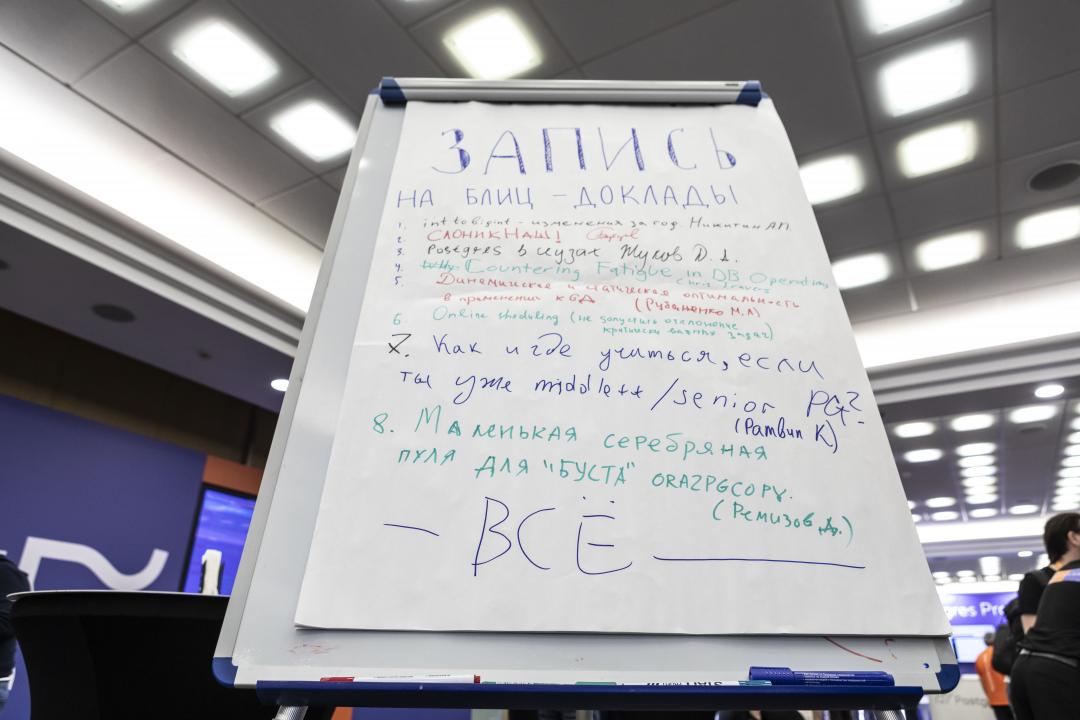 ЗАПИСЬ
НА БЛИЦ-ДОКЛАДЫ
1. int to bigint - изменения за год. Никитин А.П.
2. СЛОНИК НАШ!
3. Postgres в Жуков Д. А.
4. Countering Fatigue in DB Operations
Chris Travers
5. Динамическая и статическая оптимальность
в применении к БД (Рубаненко М.А)
6. Online sheduling (не допустить отклонение
критически важных задач)
7. Как и где учиться, если
ты уже middle++/senior PG?
(Рамвин К)
8. Маленькая серебряная
пуля для "БУСТА" ORA2PGCOPY.
(Ремизов А.)
— ВСЁ —